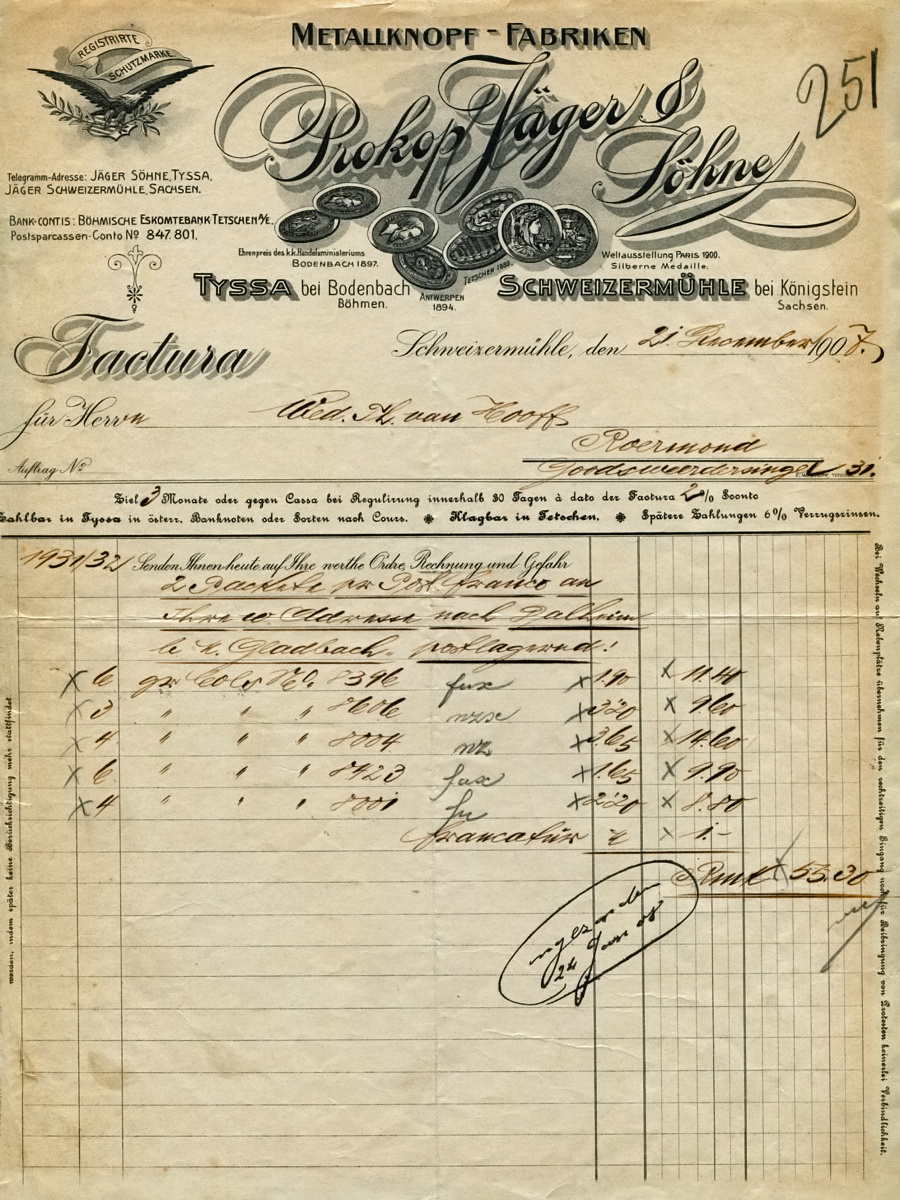 METALLKNOPF-FABRIKEN
251
REGISTRIRTE
SCHUTZMARKE.
Prokop Jäger &
Söhne
Telegramm-Adresse: JÄGER SÖHNE, TYSSA,
JÄGER SCHWEIZERMÜHLE, SACHSEN.
BANK-CONTIS: BÖHMISCHE ESKOMTEBANK TETSCHEN A/E.
Postsparcassen-Conto № 847.801.
Ehrenpreis des k.k. Handelsministeriums
BODENBACH 1897.
ANTWERPEN
1894.
TETSCHEN 1888.
Weltausstellung PARIS 1900.
Silberne Medaille.
TYSSA bei Bodenbach
Böhmen.
SCHWEIZERMÜHLE bei Königstein
Sachsen.
Factura
Schweizermühle, den 21. December 1907.
für Herrn Wed. Th. van Hooff
Roermond
Auftrag № Goodsweerdersingel 31.
Ziel 3 Monate oder gegen Cassa bei Regulirung innerhalb 30 Tagen à dato der Factura 2% Sconto
Zahlbar in Tyssa in österr. Banknoten oder Sorten nach Cours. Klagbar in Tetschen. Spätere Zahlungen 6% Verzugszinsen.
1931/32 Senden Ihnen heute auf Ihre werthe Ordre, Rechnung und Gefahr
2 Packete pr Post franco an
Ihre w. Adresse nach Dalheim
b. M. Gladbach. postlagernd!
6 gr. Cols No. 8396 1.90 11.40
3 " " " 8606 3.20 9.60
4 " " " 8004 3.65 14.60
6 " " " 8423 1.65 9.90
4 " " " 8001 2.20 8.80
Francatur " 1.-
Rmk 55.30
24 Jan 08
Bei Wechseln auf Nebenplätze übernehmen für den rechtzeitigen Eingang und für Beibringung von Protesten keinerlei Verbindlichkeit.
werden, indem später keine Berücksichtigung mehr stattfindet.